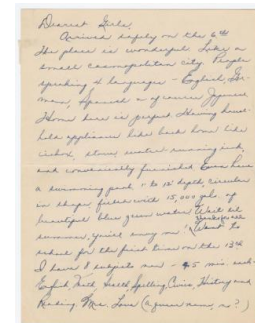 Dearest Girls,
Arrived safely on the 6th
This place is wonderful. Like a
small cosmopolitan city. People
speaking 4 languages - English, Ger-
man, Spanish & of course Japanese.
Home here is perfect. Having house-
hold appliances like back home like
icebox, stove, water running sink,
and conveniently furnished. Even have
a swimming pool. to 12' depth, circular
in shape filled with 15,000 gals. of
beautiful blue green water. Wait til
summer, you'll envy me!
school for the first time on the 13th
I have 8 subjects now - 45 min. each -
English, Math, Health, Spelling, Civics, History and
Reading. Mrs. Love (a queer name, no?)